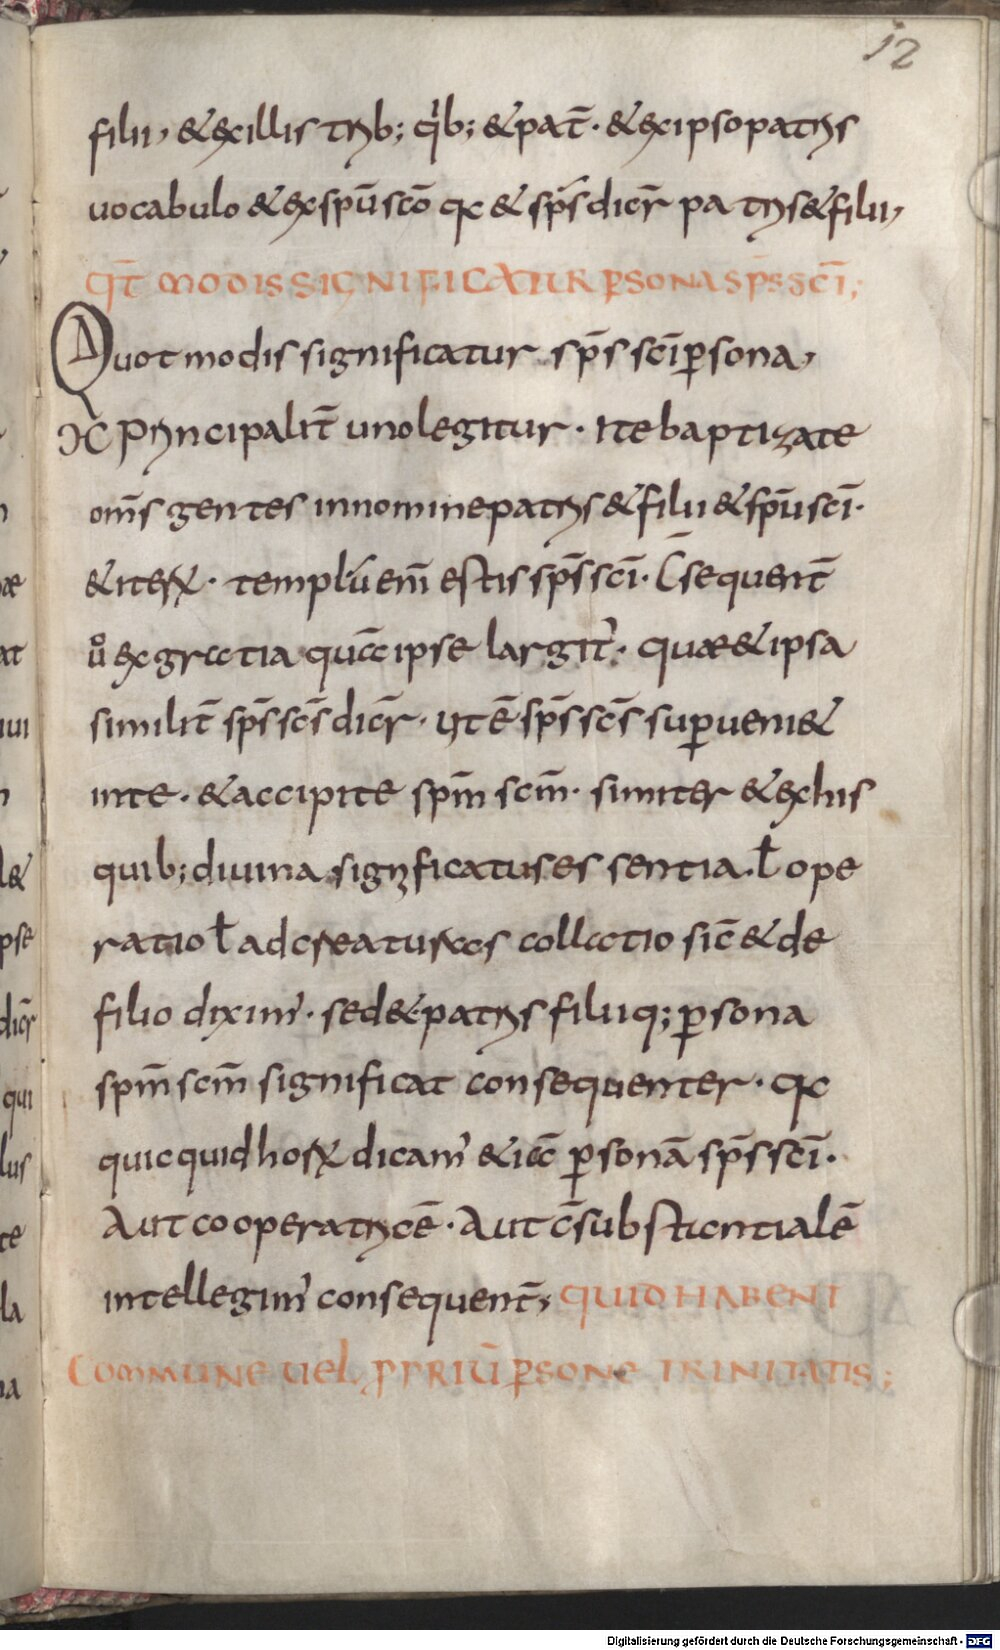 12
filii, & exillis trib; qib; & pat̄. & exipsopatris
uocabulo & exspū scō qa & sps̄ dicr̄ patris& filii,
QT̄ MODIS SIGNIFICATUR PSONA SPS̄ SCĪ;
Quot modis significatur sps̄ scī psona,
Principalit̄ uno legitur. Ite baptizate
om̄s gentes innomine patris & filii & spū scī.
& iterx. templū em̄ estis sps̄ scī. C̄sequent̄
ex gratia quā ipse largit̄. quae & ipsa
similit̄ sps̄ scs̄ dicr̄. ut ē sps̄ scs̄ supueni&
inte. & accipite spm̄ scm̄. simiter & exhis
quib; diuina significatus essentia. ł ope
ratio ł ad creaturas collatio sic̄ & de
filio dixim'. sed & patris filiiq; psona
spm̄ scm̄ significat consequenter. qa
quicquid horx dicam' & iā psonā sps̄ scī.
Aut cooperatricē. Aut c̄substantialē
intellegim' consequent̄; QUID HABENT
COMMUNE UEL PPRIŪ PSONE TRINITATIS;
Digitalisierung gefördert durch die Deutsche Forschungsgemeinschaft - DFG